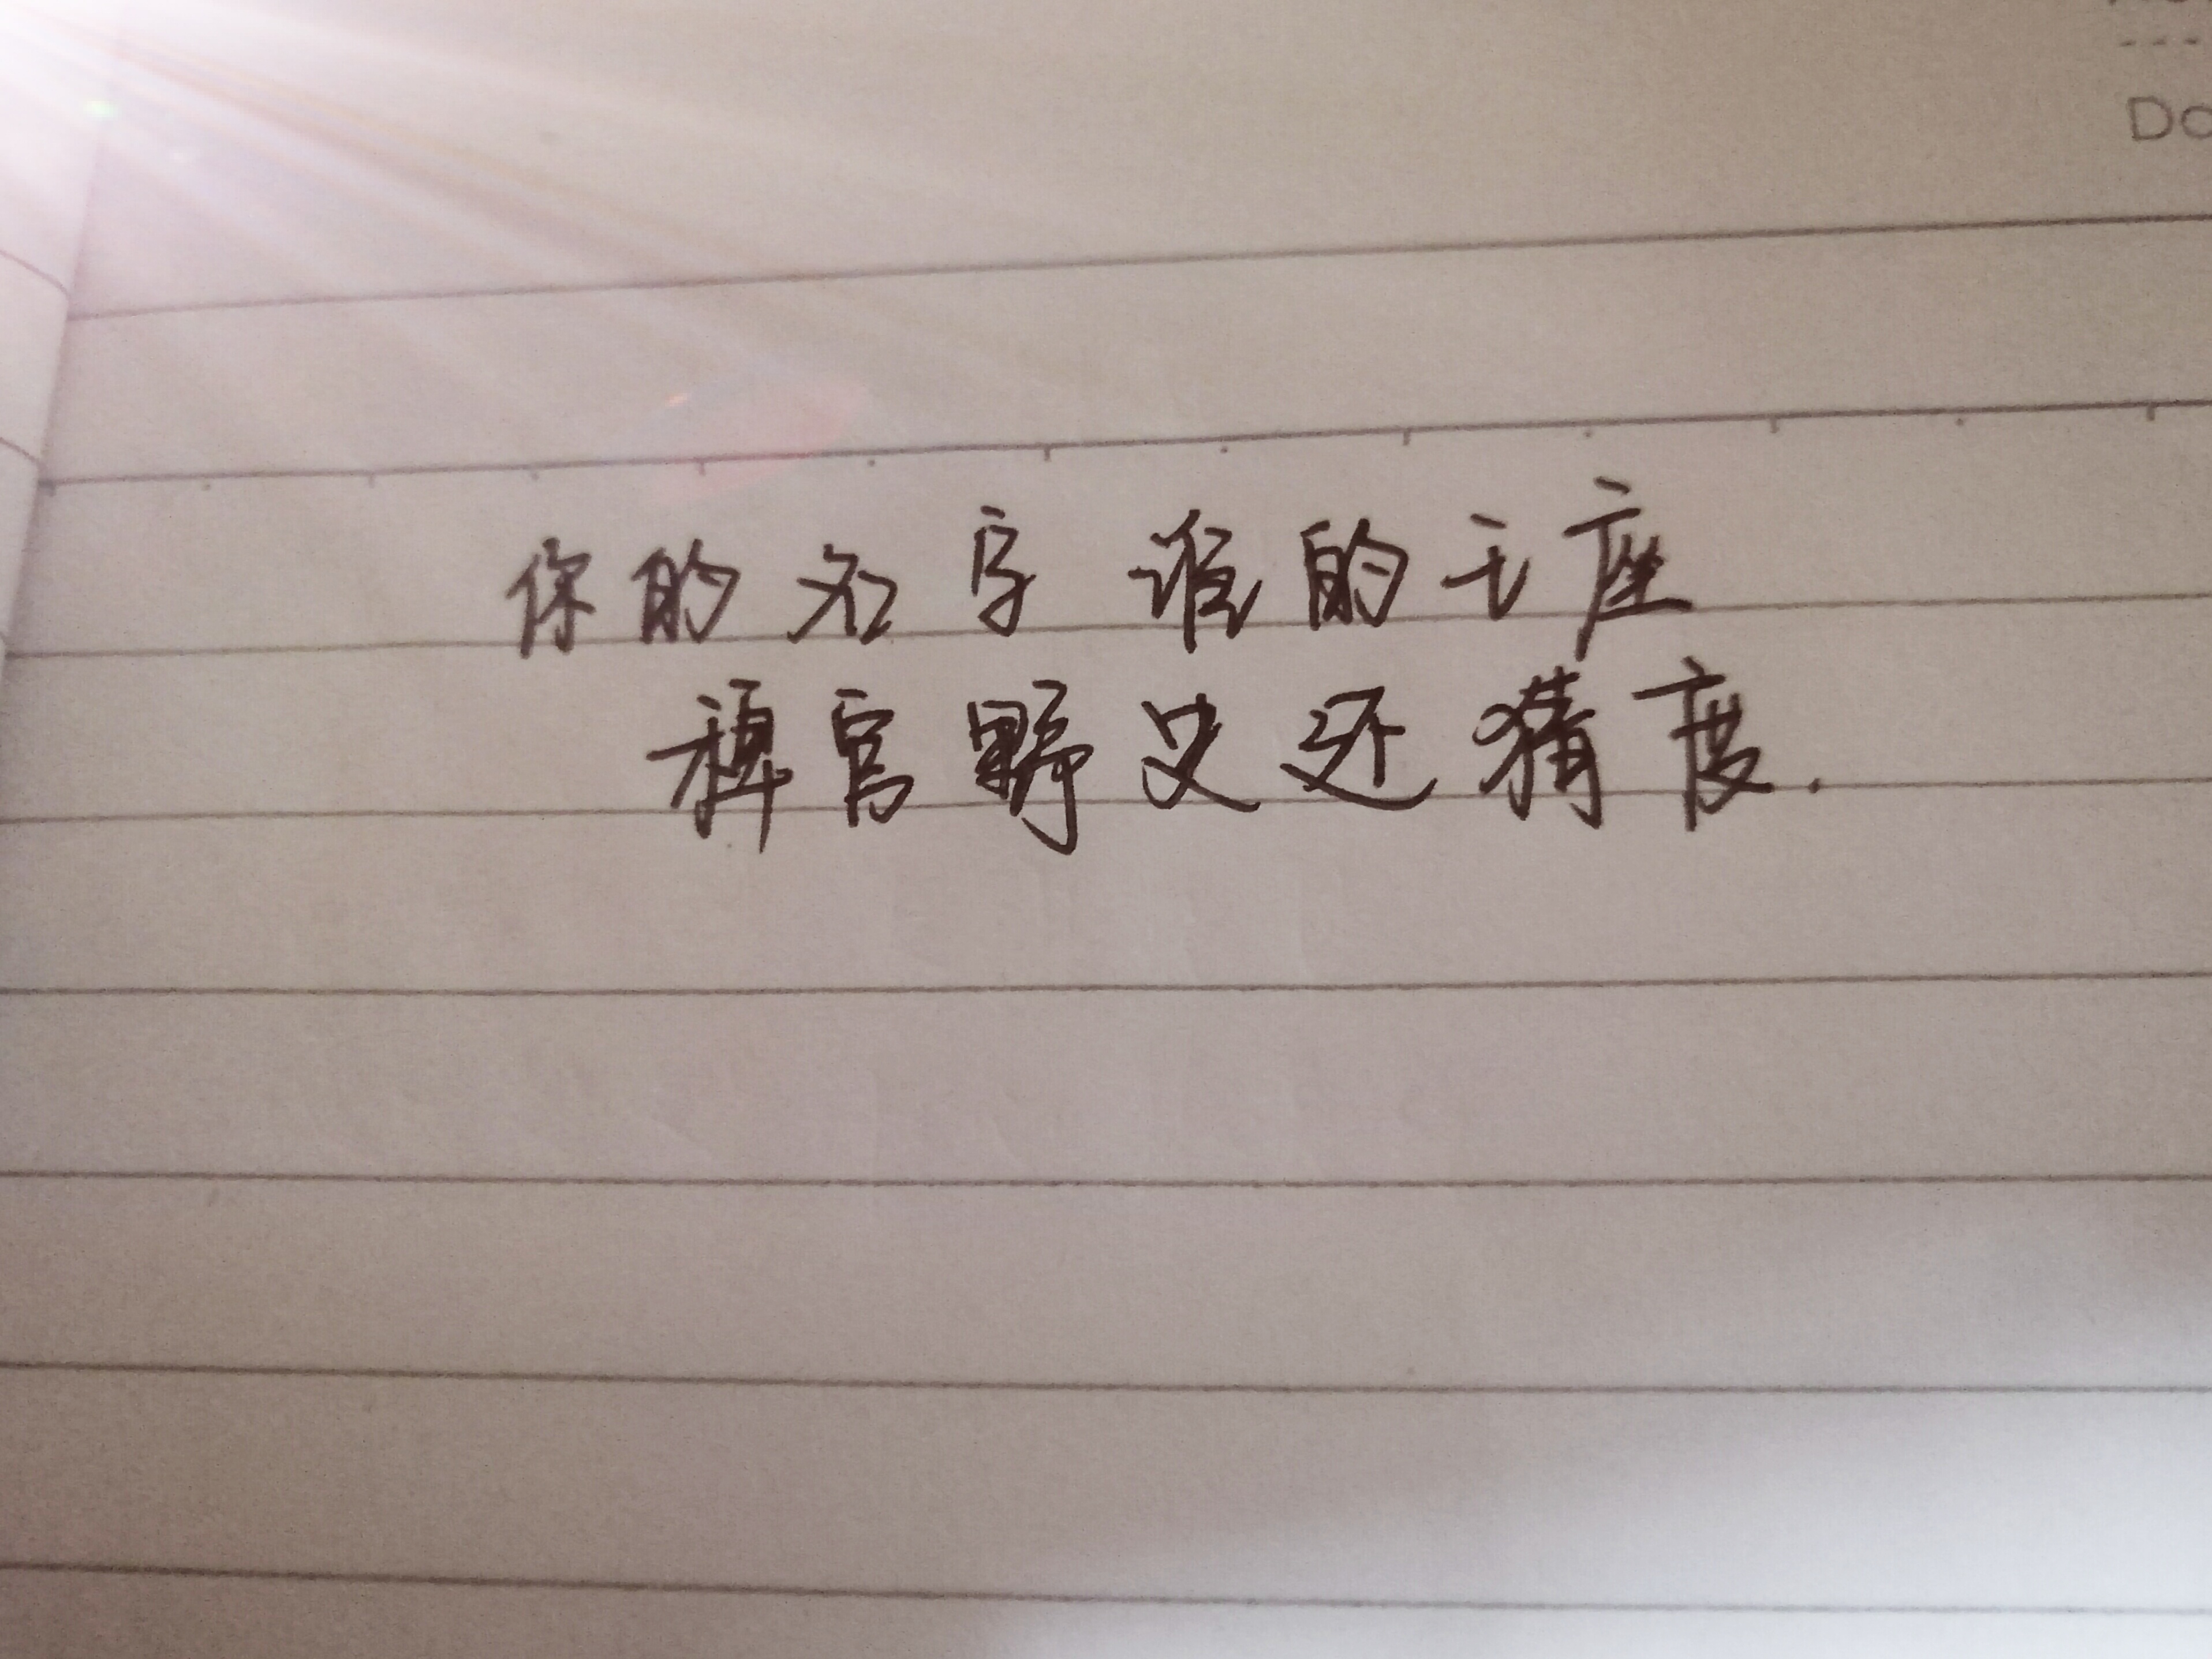 Da
你的名字谁的王座
稗官野史还猜度.